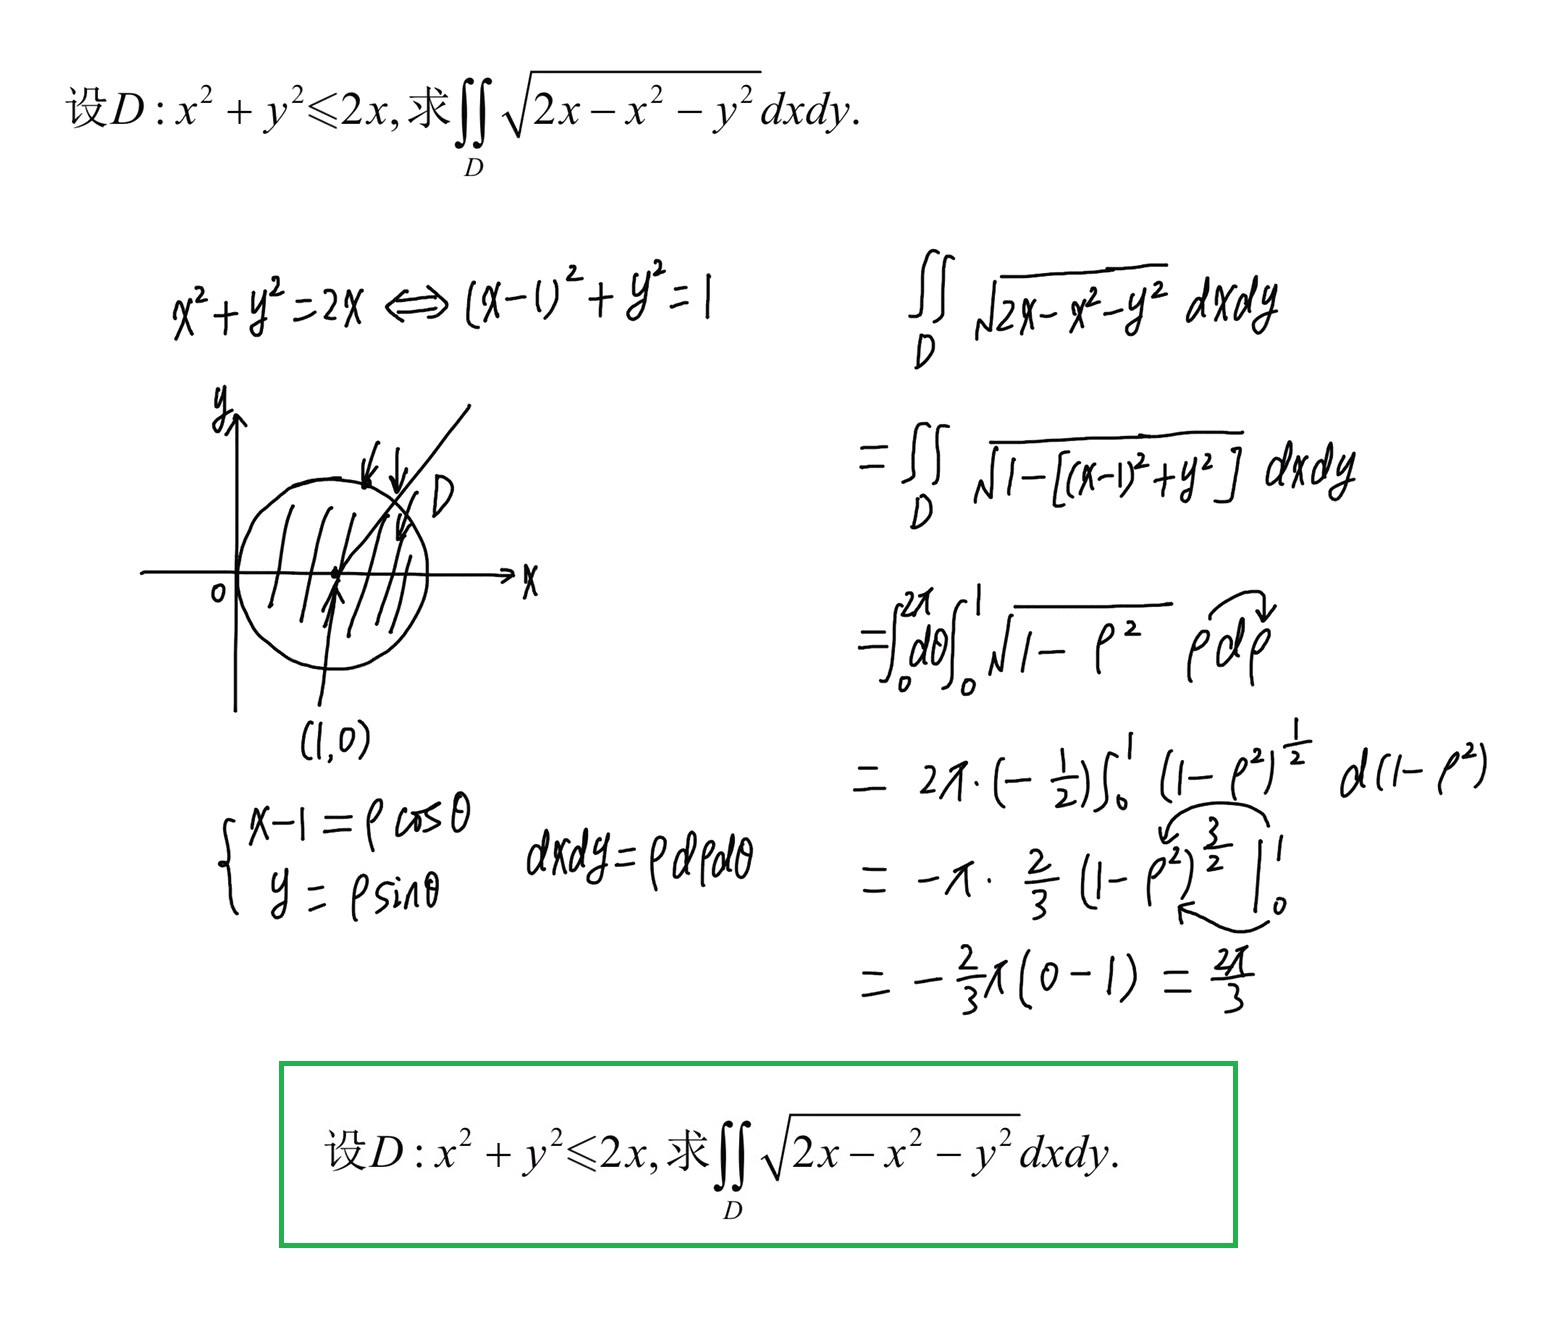 设D : x² + y² ⩽ 2x, 求∬_D √(2x − x² − y²) dxdy.
x² + y² = 2x ⇔ (x−1)² + y² = 1
y
D
0
x
(1,0)
{ x−1 = ρ cosθ
y = ρ sinθ
dxdy = ρ dρ dθ
∬_D √(2x − x² − y²) dxdy
= ∬_D √(1 − [(x−1)² + y²]) dxdy
= ∫₀^{2π} dθ ∫₀^1 √(1 − ρ²) ρ dρ
= 2π · (− 1/2) ∫₀^1 (1 − ρ²)^{1/2} d(1 − ρ²)
= −π · 2/3 (1 − ρ²)^{3/2} |₀^1
= − 2/3 π (0 − 1) = 2π/3
设D : x² + y² ⩽ 2x, 求∬_D √(2x − x² − y²) dxdy.